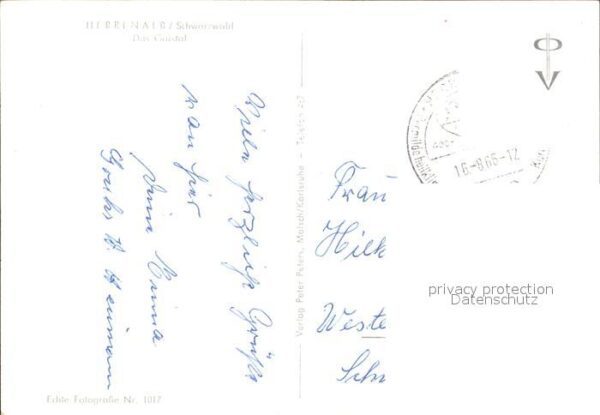 HERRENALB/Schwarzwald
Das Gaistal
Viele herzliche Grüße
von hier
Grüße H. Heimann
Verlag Peter Peters, Malsch/Karlsruhe — Telefon
16.-8.66-12
Frau
Hilk
Weste
Sch
privacy protection
Datenschutz
Echte Fotografie Nr. 1017